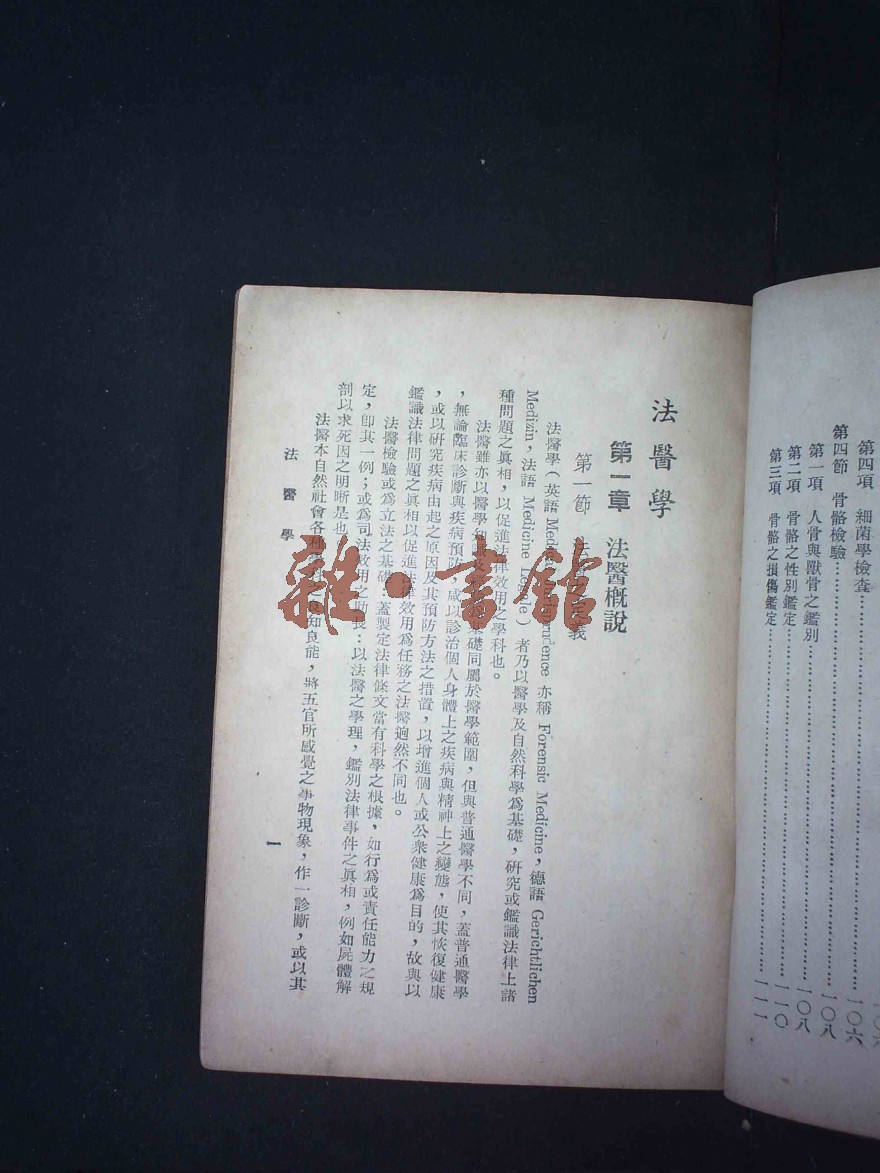 第四項　細菌學檢查……一〇六
第四節　骨骼檢驗……一〇八
第一項　人骨與獸骨之鑑別……一〇八
第二項　骨骼之性別鑑定……一一〇
第三項　骨骼之損傷鑑定……一一一
法醫學
第一章　法醫概說
第一節　法義
法醫學（英語 Medi dence 亦稱 Forensic Medicine，德語 Gerichtlichen
Medizin，法語 Medicine Legale）者乃以醫學及自然科學爲基礎，研究或鑑識法律上諸
種問題之眞相，以促進法律效用之學科也。
法醫雖亦以醫學知識及基礎同屬於醫學範圍，但與普通醫學不同，蓋普通醫學
，無論臨床診斷與疾病預防，咸以診治個人身體上之疾病與精神上之變態，使其恢復健康
，或以研究疾病由起之原因及其預防方法之措置，以增進個人或公衆健康爲目的，故與以
鑑識法律問題之眞相以促進法律效用爲任務之法醫迥然不同也。
法醫檢驗或爲立法之基礎：蓋製定法律條文當有科學之根據，如行爲或責任能力之規
定，卽其一例；或爲司法效用之助長：以法醫之學理，鑑別法律事件之眞相，例如屍體解
剖以求死因之明晰是也
法醫本自然社會各種知良能，將五官所感覺之事物現象，作一診斷，或以其
法醫學
一
雜·書館